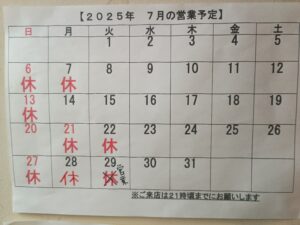 【２０２５年　７月の営業予定】
日 月 火 水 木 金 土
1 2 3 4 5
6 7 8 9 10 11 12
休 休
13 14 15 16 17 18 19
休
20 21 22 23 24 25 26
休 休
27 28 29 30 31
休 休 休 営業
※ご来店は２１時までにお願いします